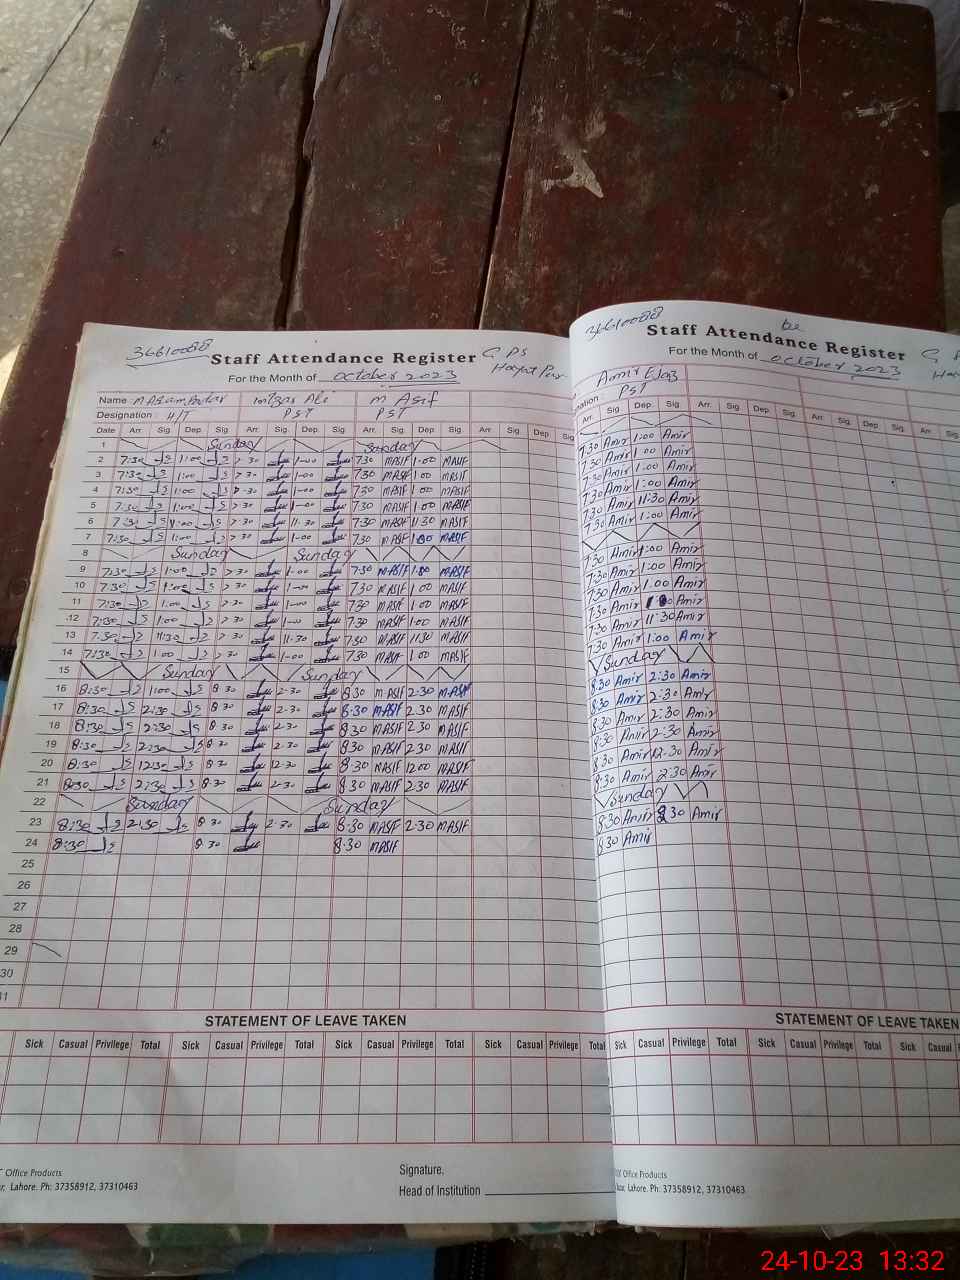 36610088
Staff Attendance Register G PS
For the Month of October 2023
Name Ali m Asif
Designation: H/T PST PST
Date Arr. Sig. Dep. Sig. Arr. Sig. Dep. Sig. Arr. Sig. Dep. Sig. Arr. Sig. Dep. Sig.
1 Sunday Sunday
2 7:30 1:00 7-30 1-00 730 MASIF 1.00 MASIF
3 7:30 1:00 7-30 1-00 730 MASIF 1.00 MASIF
4 7:30 1:00 7-30 1-00 730 MASIF 1.00 MASIF
5 7:30 1:00 7-30 1-00 730 MASIF 1.00 MASIF
6 7:30 11:00 7-30 11-30 7:30 MASIF 11:30 MASIF
7 7:30 1:00 7-30 1-00 730 MASIF 1.00 MASIF
8 Sunday Sunday
9 7:30 1:00 7-30 1-00 7:30 MASIF 1.00 MASIF
10 7:30 1:00 7-30 1-00 730 MASIF 1.00 MASIF
11 7:30 1:00 7-30 1-00 730 MASIF 1.00 MASIF
12 7:30 1:00 7-30 1-00 730 MASIF 1:00 MASIF
13 7:30 11:30 7-30 11-30 730 MASIF 1130 MASIF
14 7:30 1:00 7-30 1-00 730 MASIF 1.00 MASIF
15 Sunday Sunday
16 8:30 1:00 8 30 2-30 830 MASIF 2:30 MASIF
17 8:30 2:30 8 30 2-30 8.30 MASIF 2.30 MASIF
18 8:30 2:30 8 30 2-30 830 MASIF 2.30 MASIF
19 8:30 2:30 8 30 2-30 830 MASIF 230 MASIF
20 8:30 12:30 8 30 12-30 8:30 MASIF 1200 MASIF
21 8:30 2:30 8 30 2-30 830 MASIF 2.30 MASIF
22 Sunday Sunday
23 8:30 2:30 8 30 2-30 8.30 MASIF 2.30 MASIF
24 8:30 8 30 8.30 MASIF
25
26
27
28
29
30
31
STATEMENT OF LEAVE TAKEN
Sick Casual Privilege Total Sick Casual Privilege Total Sick Casual Privilege Total Sick Casual Privilege Total
Office Products
Lahore. Ph: 37358912, 37310463
Signature.
Head of Institution
36610088
be
Staff Attendance Register
For the Month of October 2023
Amir
PST
Arr. Sig. Dep. Sig. Arr. Sig. Dep. Sig. Arr. Sig. Dep. Sig.
7:30 Amir 1:00 Amir
7:30 Amir 1:00 Amir
7:30 Amir 1:00 Amir
7:30 Amir 1:00 Amir
7:30 Amir 11:30 Amir
7:30 Amir 1:00 Amir
7:30 Amir 1:00 Amir
7:30 Amir 1:00 Amir
7:30 Amir 1.00 Amir
7:30 Amir Amir
7:30 Amir 11:30 Amir
7:30 Amir 1:00 Amir
Sunday
8:30 Amir 2:30 Amir
8:30 Amir 2:30 Amir
8:30 Amir 2:30 Amir
8:30 Amir 2:30 Amir
8:30 Amir 12:30 Amir
8:30 Amir 2:30 Amir
Sunday
8:30 Amir 30 Amir
8:30 Amir
STATEMENT OF LEAVE TAKEN
Sick Casual Privilege Total Sick Casual Privilege Total Sick Casual
Office Products
Lahore. Ph: 37358912, 37310463
24-10-23 13:32